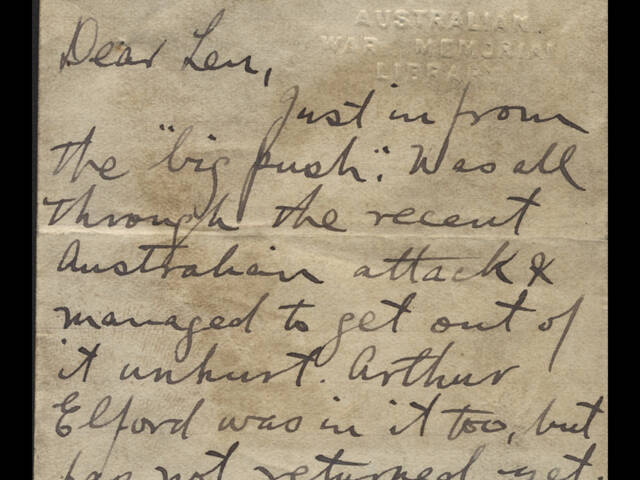 AUSTRALIAN
WAR MEMORIAL
LIBRARY
Dear Len,
Just in from
the "big push". Was all
through the recent
Australian attack &
managed to get out of
it unhurt. Arthur
Elford was in it too, but
has not returned yet.